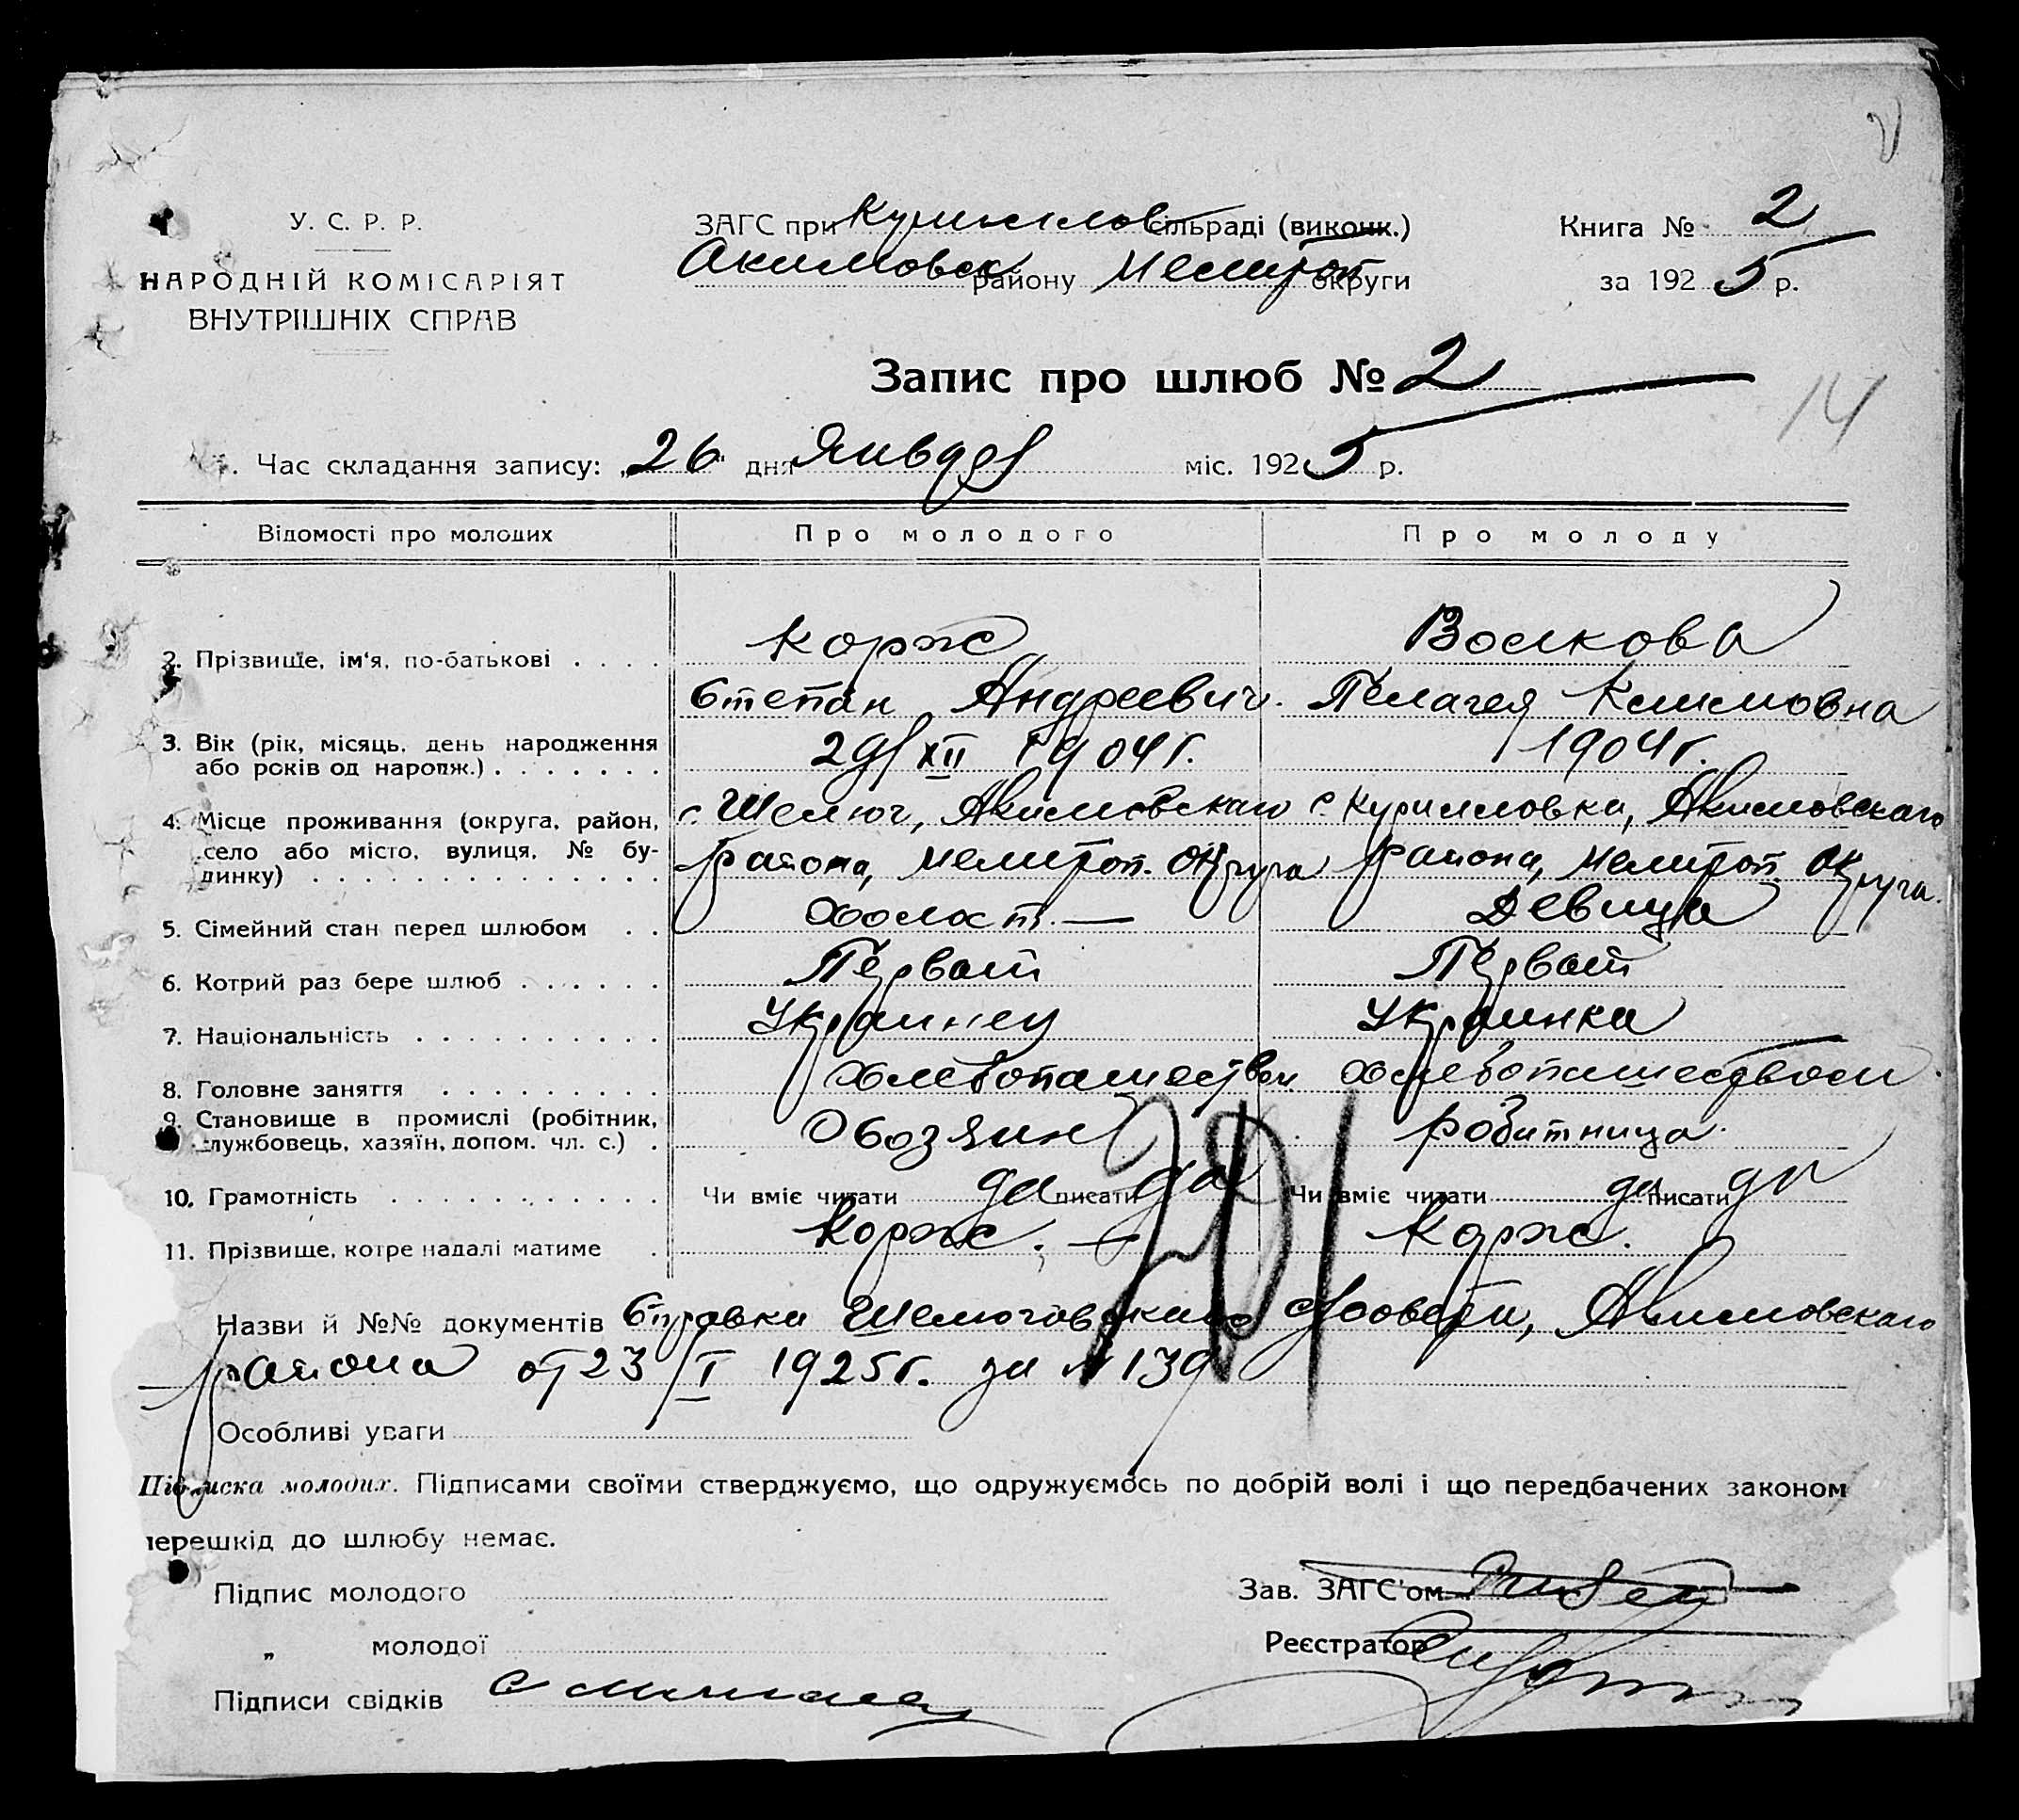 У. С. Р. Р.
НАРОДНІЙ КОМІСАРІЯТ
ВНУТРІШНІХ СПРАВ
ЗАГС при Кириллов сільраді (виконк.)
Акимовск району Мелитоп округи
Книга № 2
за 1925 р.
Запис про шлюб № 2
14
Час складання запису: „26" дня Января міс. 1925 р.
Відомості про молодих
Про молодого
Про молоду
2. Прізвище, ім'я, по-батькові . . . .
Корж
Волкова
Степан Андреевич.
Пелагея Климовна
3. Вік (рік, місяць, день народження
або років од нарож.) . . . . . . .
29/XII 1904 г.
1904 г.
4. Місце проживання (округа, район,
село або місто, вулиця, № бу-
динку) . . . . . . . . . . . . . .
с. Шелюг, Акимовскаго
района, Мелитоп. Округа
с. Кирилловка, Акимовскаго
района, Мелитоп. Округа.
5. Сімейний стан перед шлюбом . .
Холост. —
Девица
6. Котрий раз бере шлюб . . . . . .
Первый
Первый
7. Національність . . . . . . . . . .
Украинец
Украинка
8. Головне заняття . . . . . . . . .
Хлебопашеством
Хлебопашеством
9. Становище в промислі (робітник,
службовець, хазяїн, допом. чл. с.) .
Хозяин
работница.
10. Грамотність . . . . . . . . . . .
Чи вміє читати да писати да
Чи вміє читати да писати да
11. Прізвище, котре надалі матиме .
Корж. —
Корж.
Назви й №№ документів Справка Шелюговскаго с/совета, Акимовскаго
района от 23/I 1925 г. за № 139
Особливі уваги
Підписка молодих. Підписами своїми стверджуємо, що одружуємось по добрій волі і що передбачених законом
перешкід до шлюбу немає.
Підпис молодого
Зав. ЗАГС'ом
„ молодої
Реєстратор
Підписи свідків